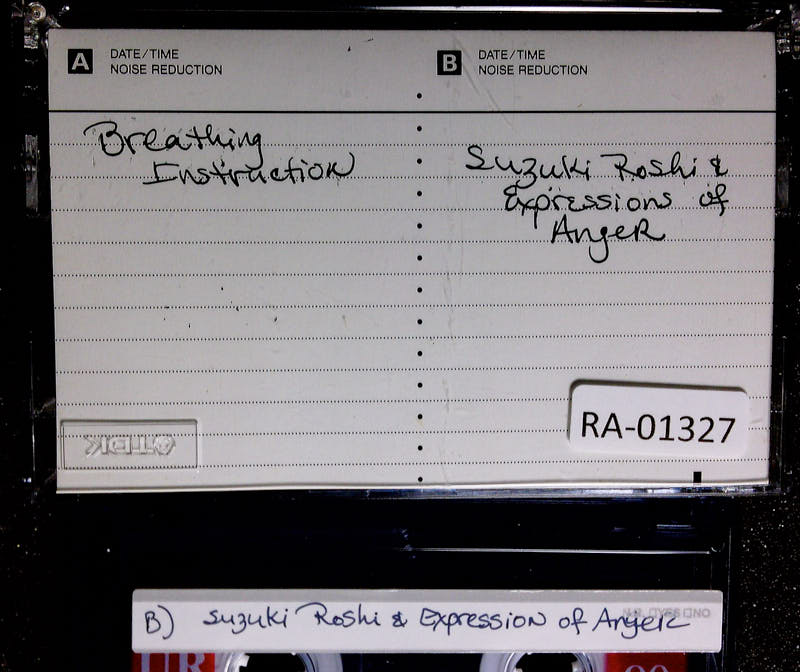 A DATE/TIME
NOISE REDUCTION
B DATE/TIME
NOISE REDUCTION
Breathing
Instruction
Suzuki Roshi &
Expressions of
Anger
RA-01327
TDK
B) Suzuki Roshi & Expression of Anger
N.R. □YES □NO
UR
90